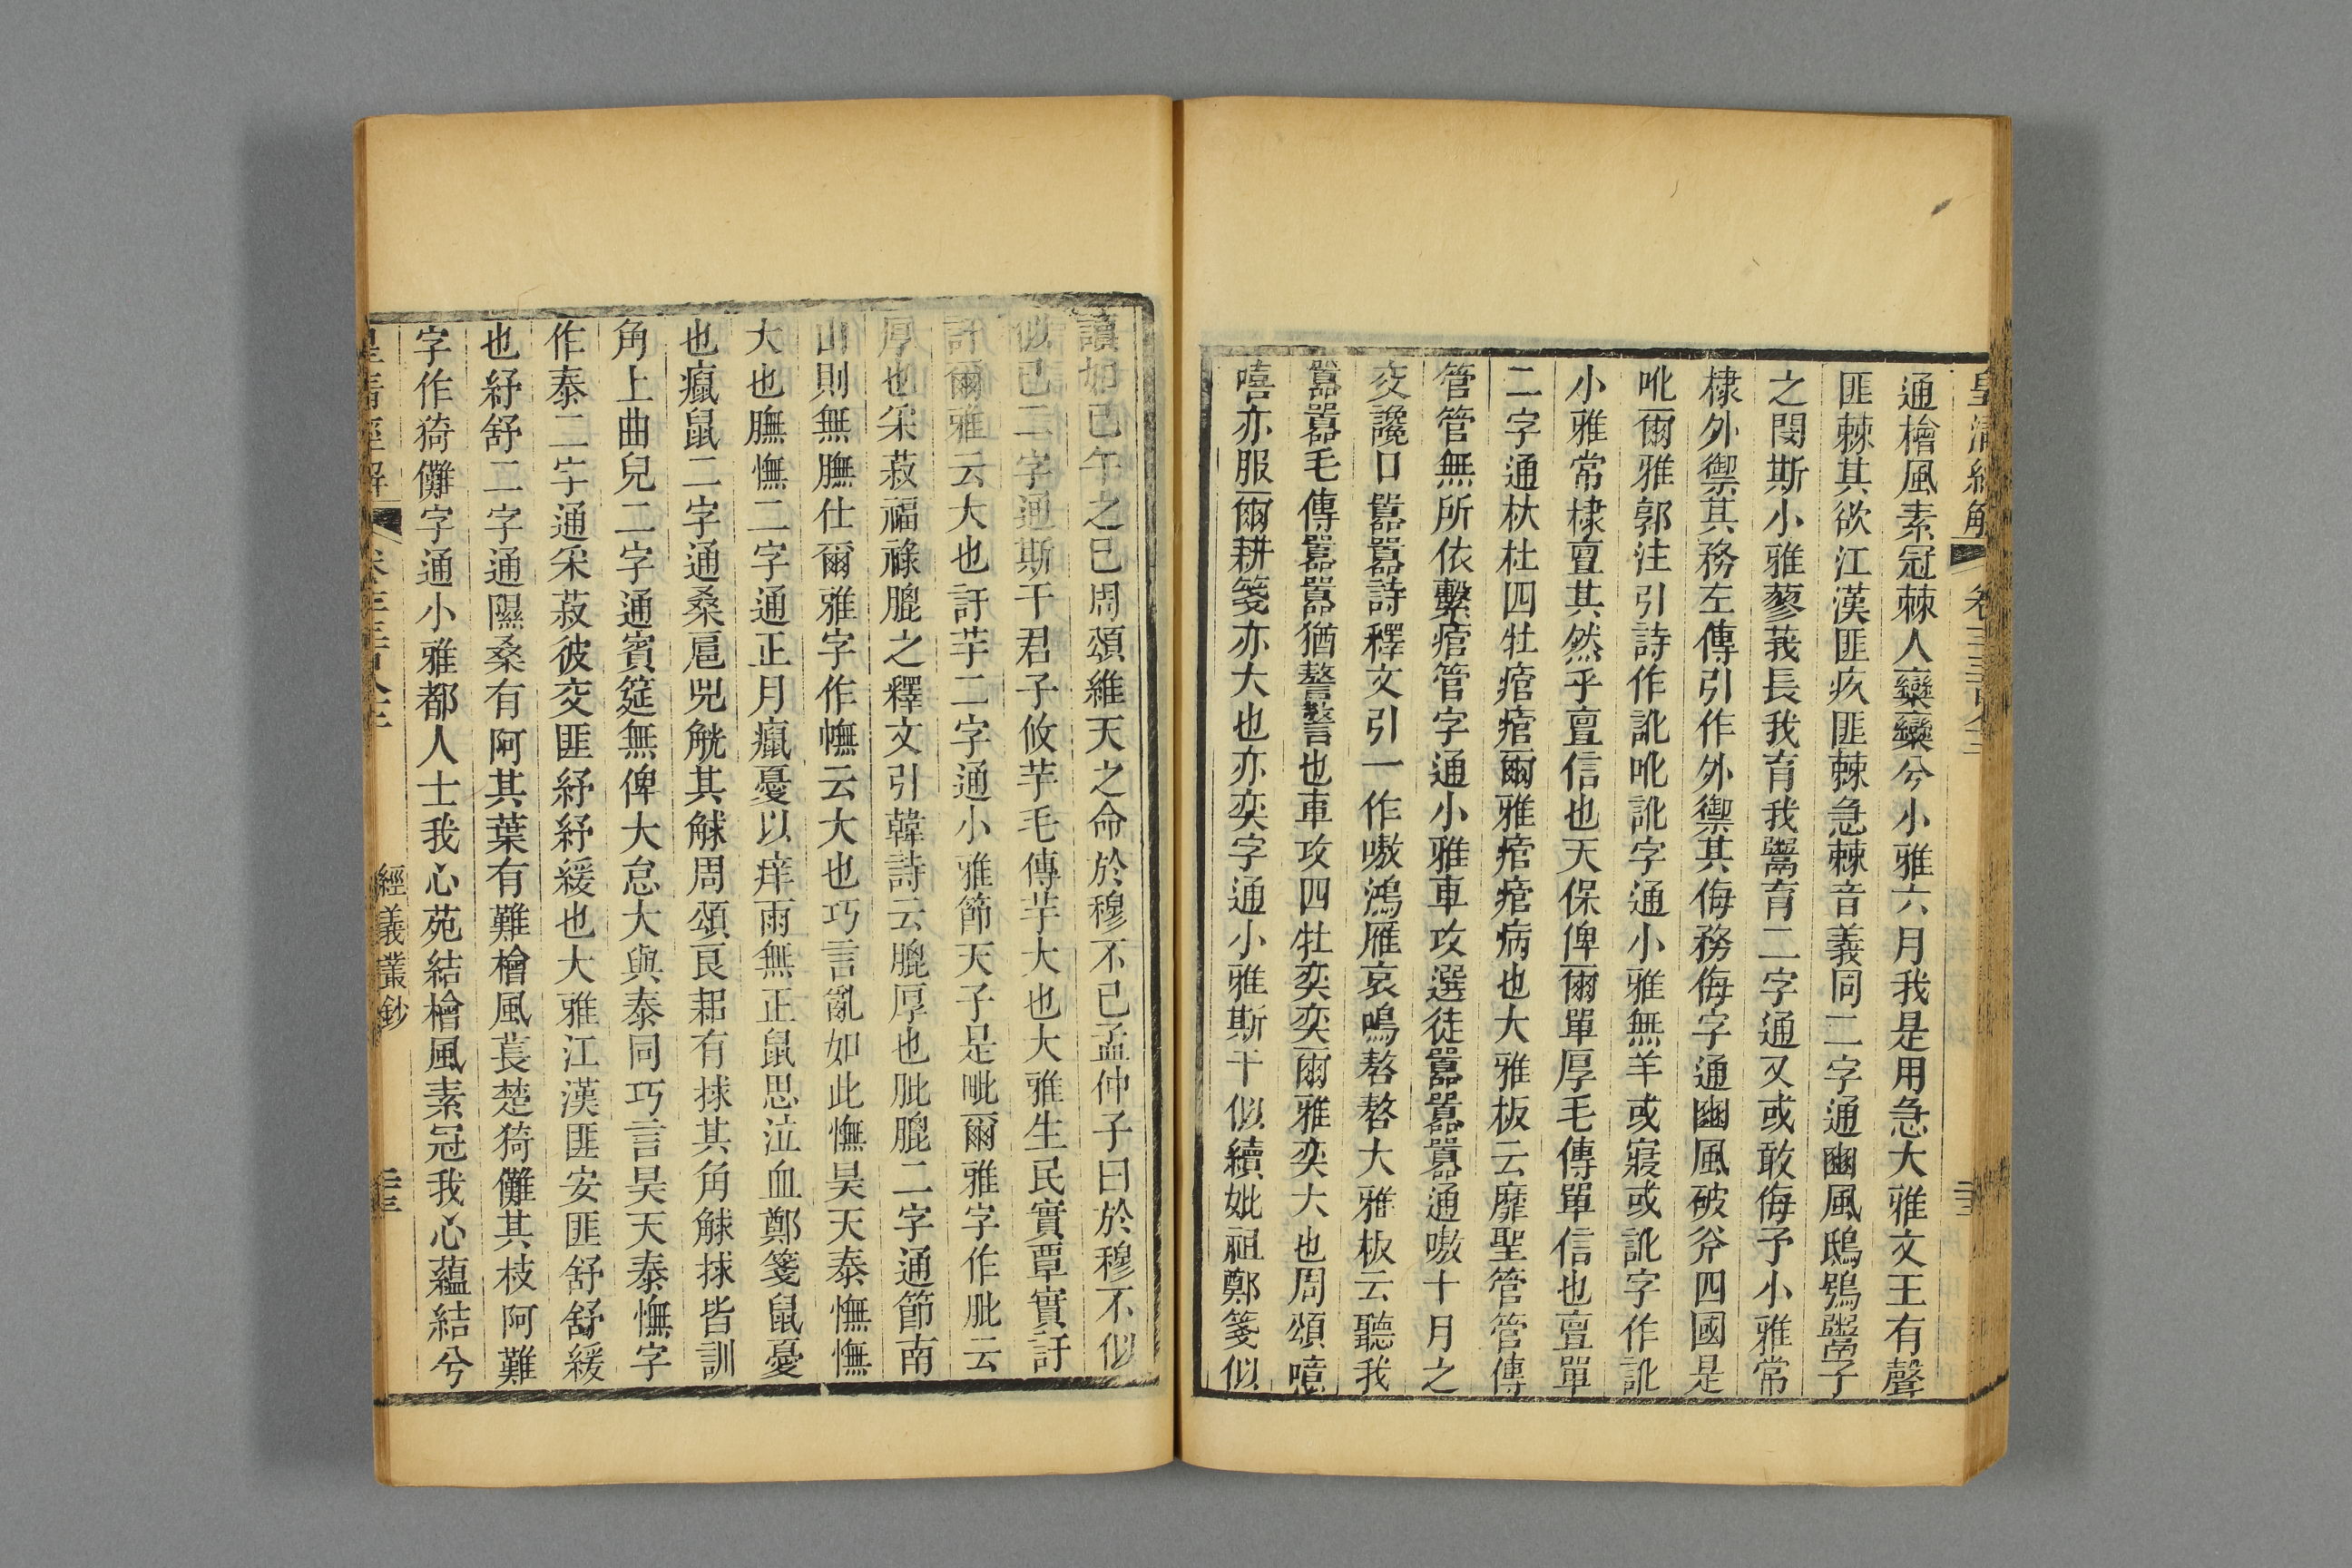 皇清經解
通檜風素冠棘人欒欒兮小雅六月我是用急大雅文王有聲
匪棘其欲江漢匪疚匪棘急棘音義同二字通豳風鴟鴞鬻子
之閔斯小雅蓼莪長我育我鬻育二字通又或敢侮予小雅常
棣外禦其務左傳引作外禦其侮務侮字通豳風破斧四國是
吪爾雅郭注引詩作訛吪訛字通小雅無羊或寢或訛字作訛
小雅常棣亶其然乎亶信也天保俾爾單厚毛傳單信也亶單
二字通杕杜四牡痯痯爾雅痯痯病也大雅板云靡聖管管傳
管管無所依繫痯管字通小雅車攻選徒囂囂囂通嗷十月之
交讒口囂囂詩釋文引一作嗷鴻雁哀鳴嗸嗸大雅板云聽我
囂囂毛傳囂囂猶謷謷也車攻四牡奕奕爾雅奕大也周頌噫
嘻亦服爾耕箋亦大也亦奕字通小雅斯干似續妣祖鄭箋似
讀如巳午之巳周頌維天之命於穆不已孟仲子曰於穆不似
似已二字通斯干君子攸芋毛傳芋大也大雅生民實覃實訏
訏爾雅云大也訏芋二字通小雅節天子是毗爾雅字作膍云
厚也采菽福祿膍之釋文引韓詩云膍厚也膍膍二字通節南
山則無膴仕爾雅字作幠云大也巧言亂如此憮昊天泰憮憮
大也膴憮二字通正月癙憂以痒雨無正鼠思泣血鄭箋鼠憂
也癙鼠二字通桑扈兕觥其觩周頌良耜有捄其角觩捄皆訓
角上曲皃二字通賓筵無俾大怠大與泰同巧言昊天泰憮字
作泰二字通采菽彼交匪紓紓緩也大雅江漢匪安匪舒舒緩
也紓舒二字通隰桑有阿其葉有難檜風萇楚猗儺其枝阿難
字作猗儺字通小雅都人士我心苑結檜風素冠我心蘊結兮
皇清經解
經義叢鈔